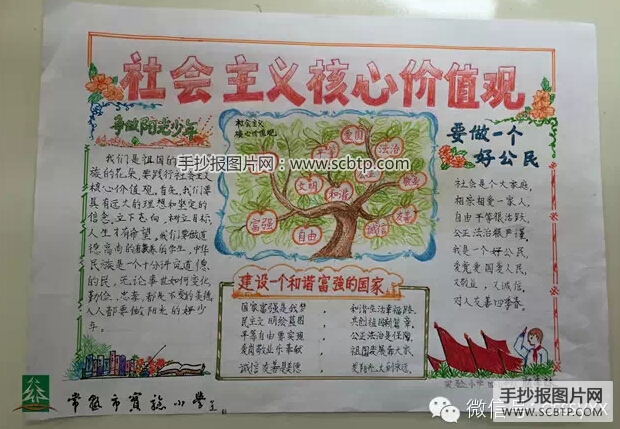 社会主义核心价值观
争做阳光少年
我们是祖国的
族的花朵,要践行社会主义
核心价值观,首先,我们要
具有远大的理想和坚定的
信念,立下志向,树立目标,
人生才有希望,我们要做道
德高尚的
学生,中华
民族是一个十分讲究道德
的民,无论事世如何变化,
勤俭,忠孝,都是不变的美德,
人人都要做阳光的好少
年。
社会主义
核心价值观
爱国
法治
文明
和谐
富强
自由
诚信
友善
手抄报图片网:www.scbtp.com
要做一个
好公民
社会是个大家庭,
相亲相爱一家人,
自由平等很活跃,
公正法治很严谨,
我是一个好公民,
爱党爱国爱人民,
又敬业,又诚信,
对人友善四季春。
建设一个和谐富强的国家
国家富强是我梦,
民主文明绘蓝图,
平等自由要实现,
爱岗敬业乐奉献,
诚信友善是美德,
和谐生活幸福路。
共创祖国新篇章。
公正法治是保障。
常熟市实验小学
微信
手抄报图片网
WWW.SCBTP.COM